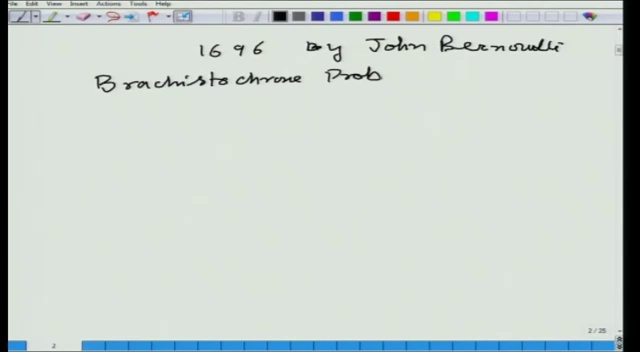 File Edit View Insert Actions Tools Help
1696 by John Bernoulli
Brachistochrone Prob
2 / 25
2